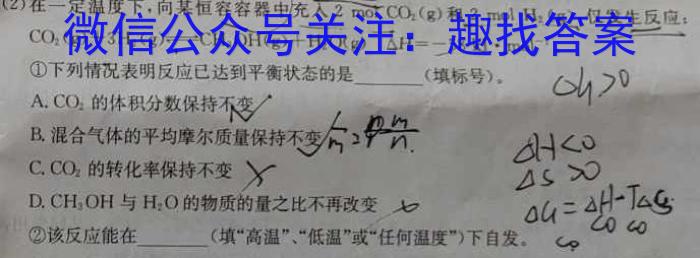 (2)在一定温度下,向某恒容容器中充入 2 mol CO₂(g) 和 2 mol H₂(g),仅发生反应:
微信公众号关注:趣找答案
①下列情况表明反应已达到平衡状态的是______(填标号)。
ΔH>0
A. CO₂ 的体积分数保持不变
B. 混合气体的平均摩尔质量保持不变
ΔH<0
C. CO₂ 的转化率保持不变
ΔS>0
D. CH₃OH 与 H₂O 的物质的量之比不再改变
②该反应能在______(填“高温”、“低温”或“任何温度”)下自发。